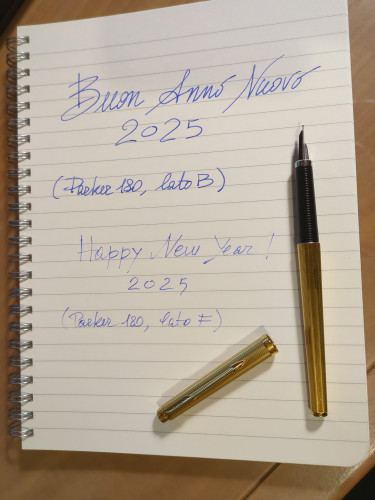 Buon Anno Nuovo
2025
(Parker 180, lato B)
Happy New Year!
2025
(Parker 180, lato F)